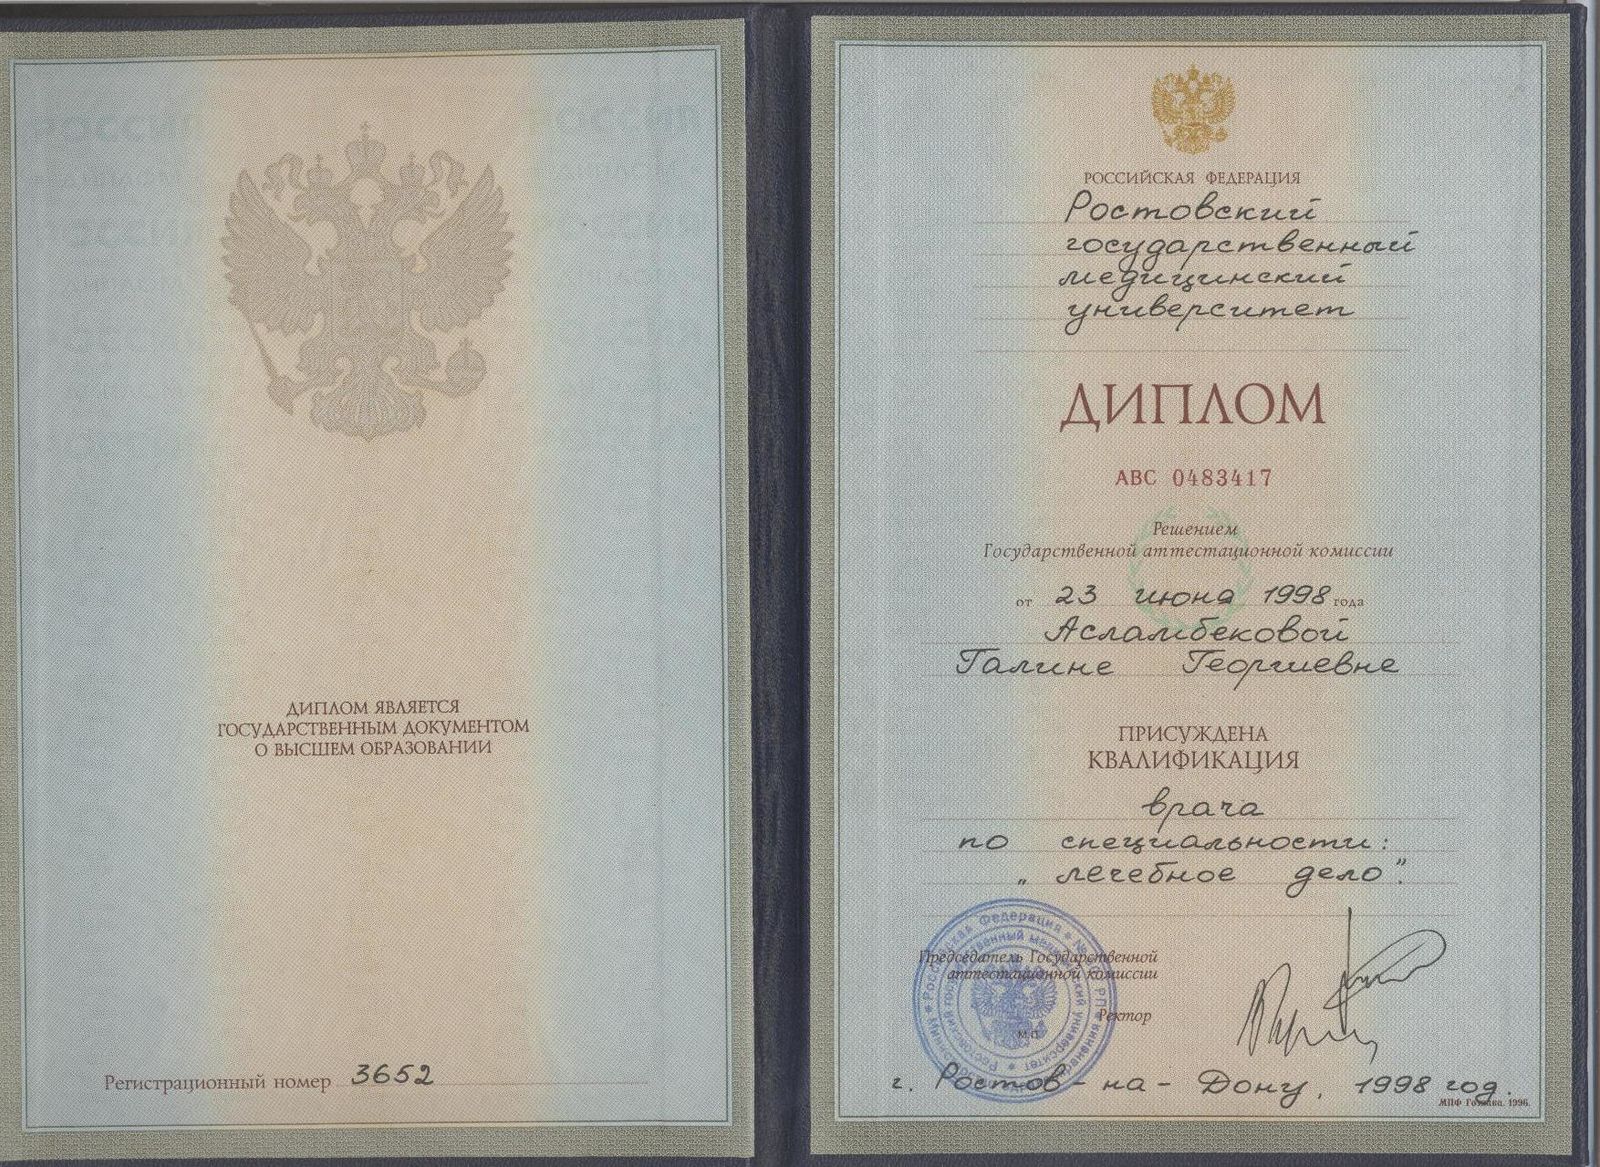 ДИПЛОМ ЯВЛЯЕТСЯ
ГОСУДАРСТВЕННЫМ ДОКУМЕНТОМ
О ВЫСШЕМ ОБРАЗОВАНИИ
Регистрационный номер 3652
РОССИЙСКАЯ ФЕДЕРАЦИЯ
Ростовский
государственный
медицинский
университет
ДИПЛОМ
АВС 0483417
Решением
Государственной аттестационной комиссии
от 23 июня 1998 года
Асламбековой
Галине Георгиевне
ПРИСУЖДЕНА
КВАЛИФИКАЦИЯ
врача
по специальности:
„лечебное дело".
Председатель Государственной
аттестационной комиссии
Ректор
М.П.
г. Ростов-на-Дону, 1998 год.
МПФ Гознака. 1996.